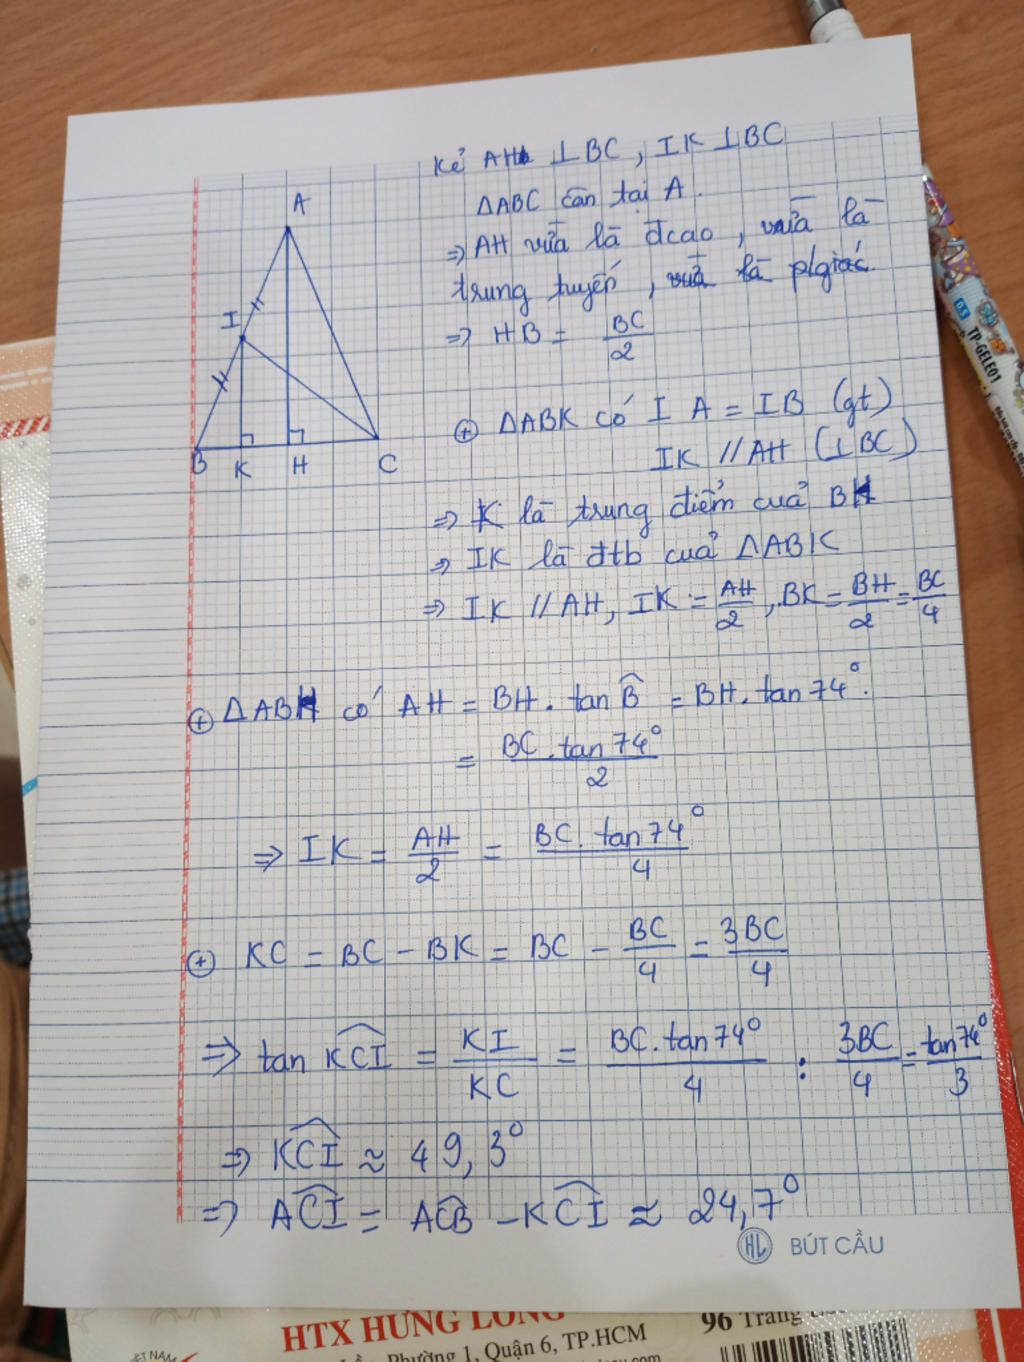 Kẻ AH ⊥BC, IK ⊥BC
ΔABC cân tại A.
⇒ AH vừa là đcao, vừa là
trung tuyến, vừa là pgiác.
⇒ HB = BC/2
A
I
B K H C
⊕ ΔABK có I A = IB (gt)
IK // AH (⊥BC)
⇒ K là trung điểm của BH
⇒ IK là đtb của ΔABK
⇒ IK // AH, IK = AH/2, BK = BH/2 = BC/4
⊕ ΔABH có AH = BH. tan B̂ = BH. tan 74°.
= BC.tan 74°/2
⇒ IK = AH/2 = BC. tan 74°/4
⊕ KC = BC - BK = BC - BC/4 = 3BC/4
⇒ tan KĈI = KI/KC = BC.tan 74°/4 : 3BC/4 = tan 74°/3
⇒ KĈI ≈ 49,3°
⇒ AĈI = AĈB - KĈI ≈ 24,7°
HL BÚT CẦU
HTX HƯNG LONG
96 Trang
Phường 1, Quận 6, TP.HCM
TP-GELE01
0.5